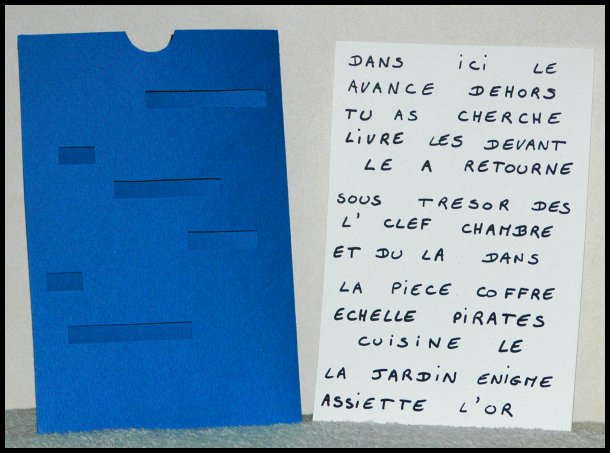 DANS ici LE
AVANCE DEHORS
TU AS CHERCHE
LiVRE LES DEVANT
LE A RETOURNE
SOUS TRESOR DES
L' CLEF CHAMBRE
ET DU LA DANS
LA PiECE COFFRE
ECHELLE PiRATES
CUiSiNE LE
LA JARDiN ENiGME
ASSiETTE L'OR